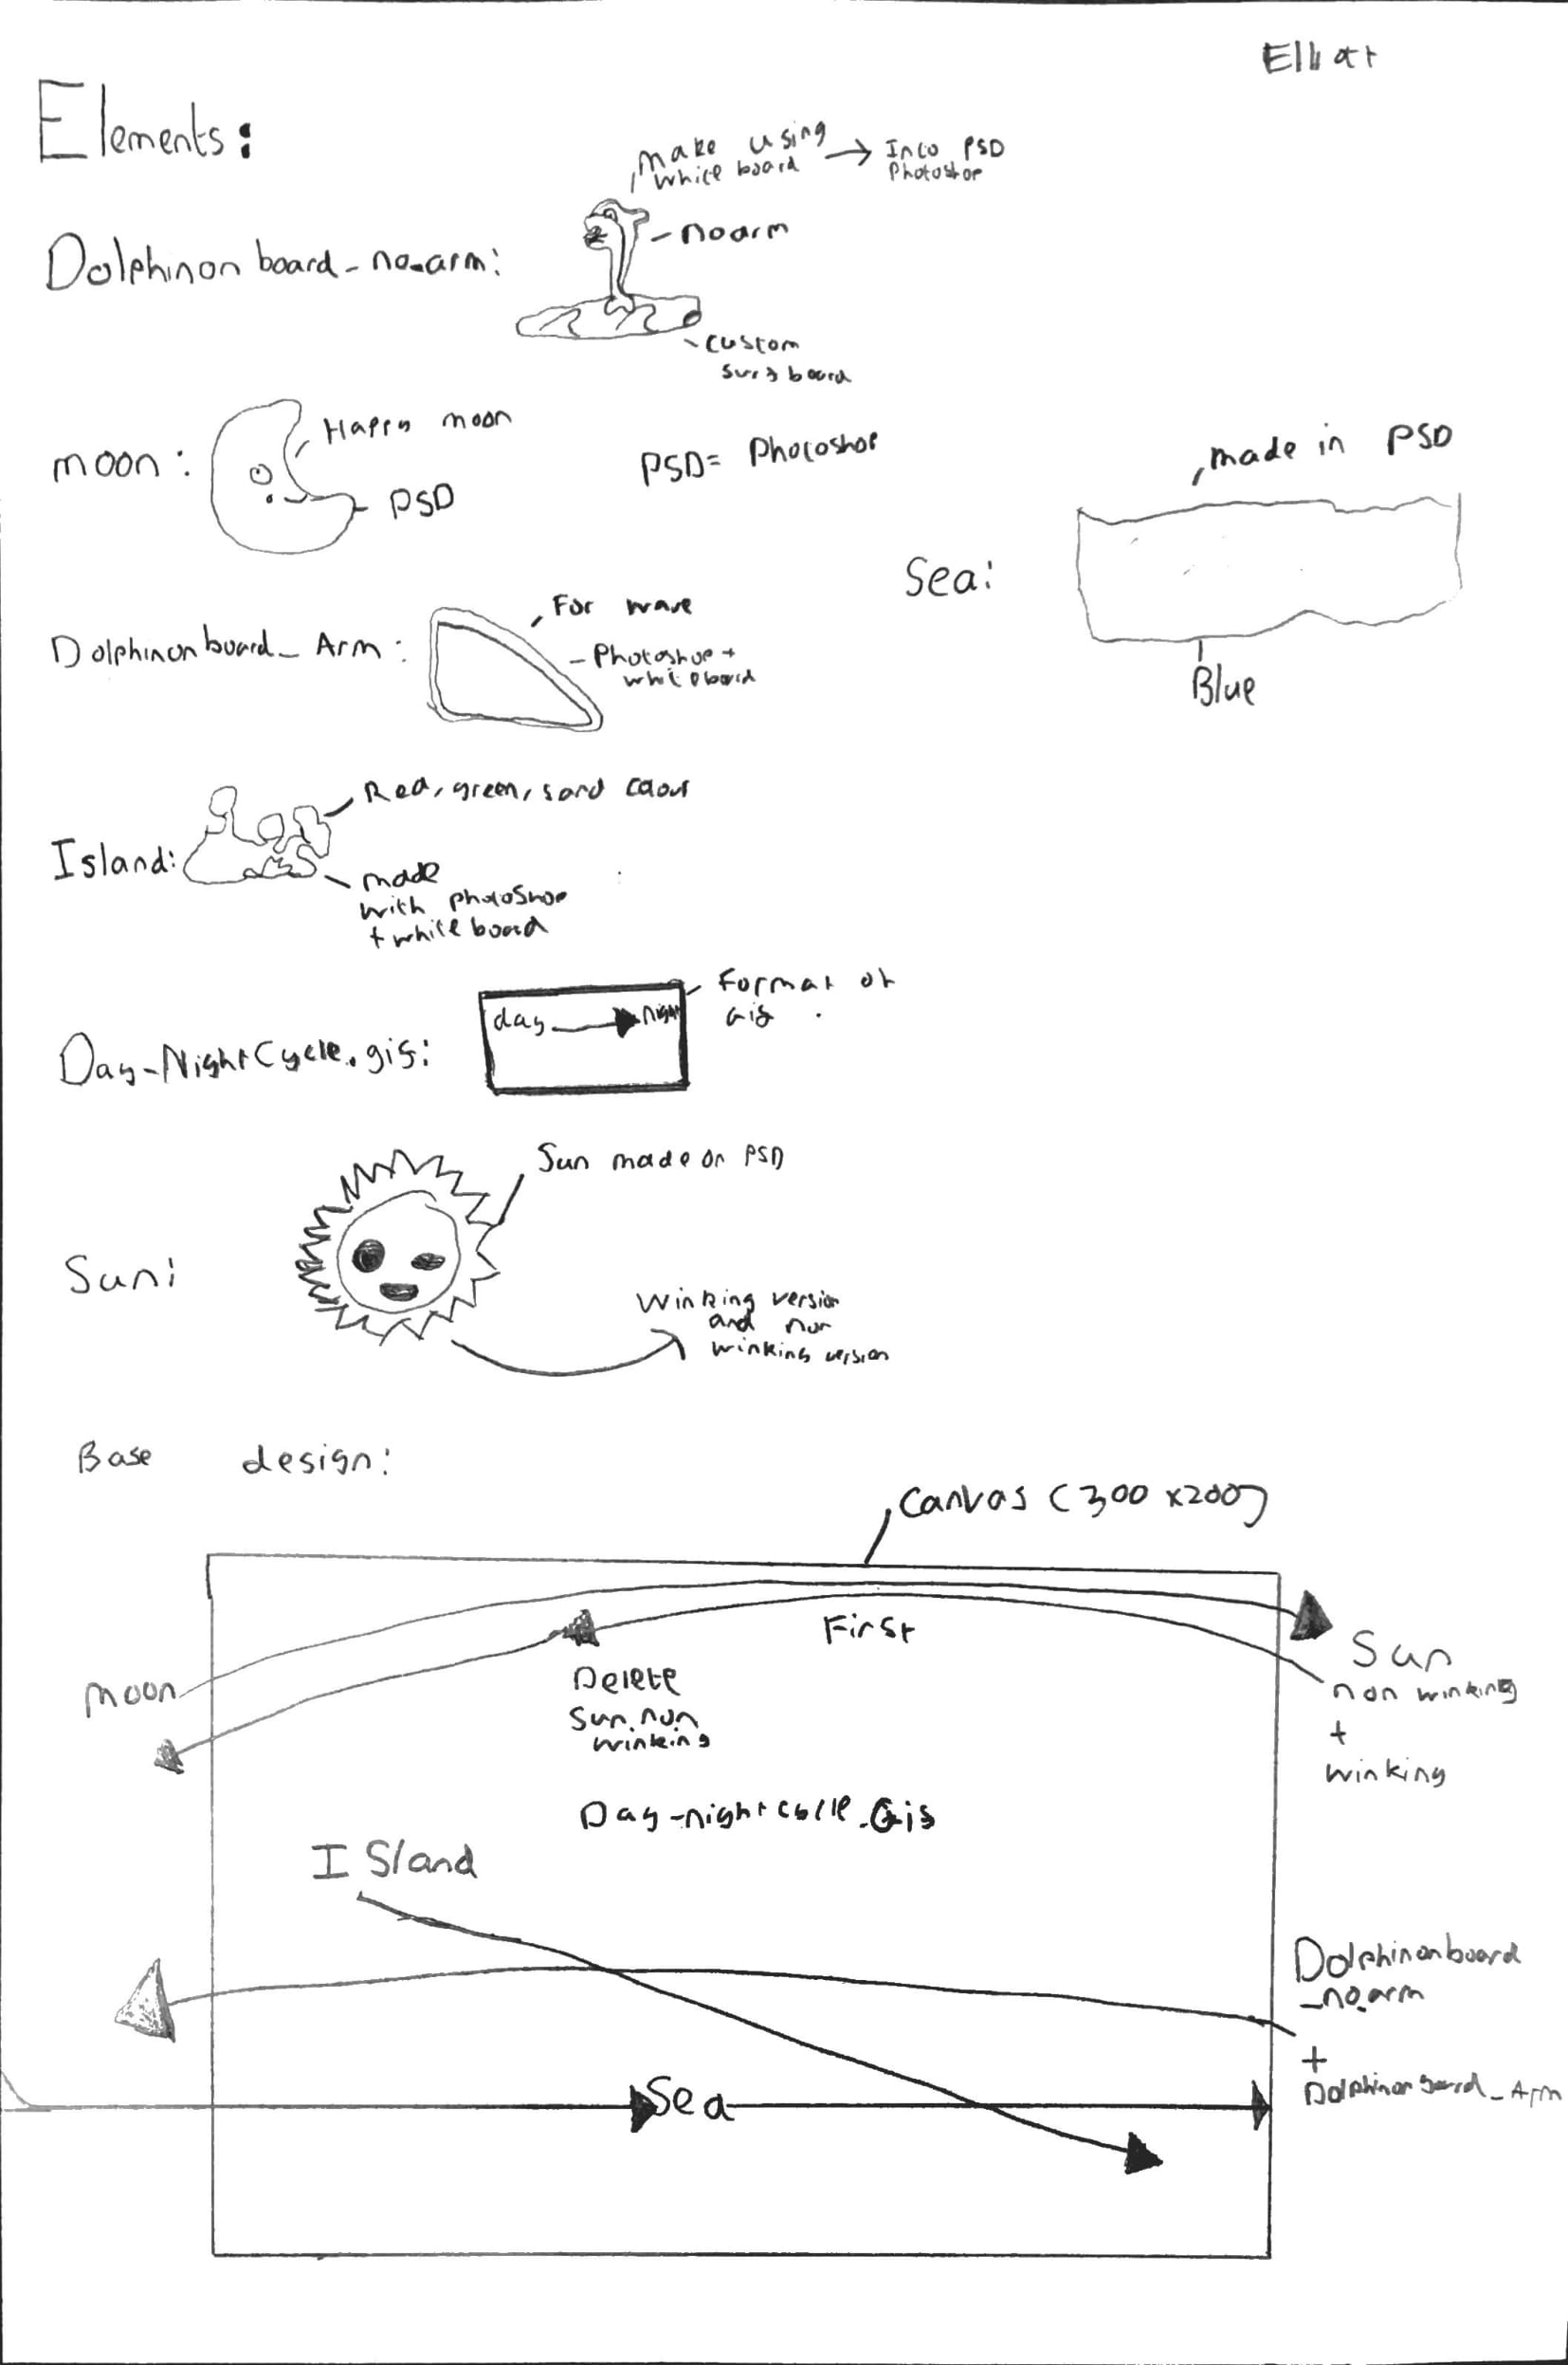 Elliot
Elements:
make using
white board
Into PSD
Photoshop
Dolphinonboard_no_arm:
no arm
custom
surf board
moon:
Happy moon
PSD
PSD= Photoshop
made in PSD
Sea:
Blue
Dolphinonboard_Arm:
For wave
Photoshop +
whiteboard
Island:
Red, green, sand colour
made
with photoshop
+ white board
Day-NightCycle.gif:
day
night
Format of
Gif
Sun:
Sun made on PSD
Winking version
and non
winking version
Base design:
Canvas (300 x200)
First
moon
Sun
non winking
+
winking
Delete
Sun. non
winking
Day-nightcycle.Gif
Island
Dolphinonboard
_no_arm
+
Dolphinonboard_Arm
Sea